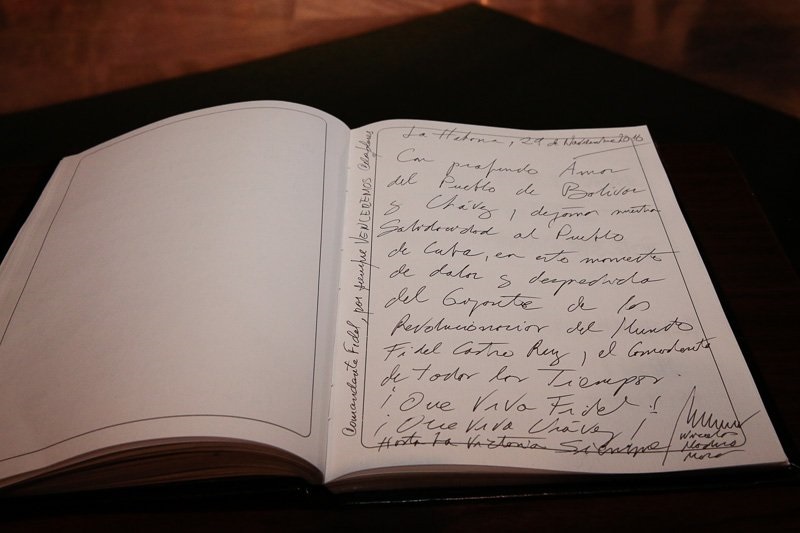 La Habana, 29 de Noviembre 2016
Con profundo Amor
del Pueblo de Bolívar
y Chávez, dejamos nuestra
Solidaridad al Pueblo
de Cuba, en este momento
de dolor y despedida
del Gigante de los
Revolucionarios del Mundo
Fidel Castro Ruz, el Comandante
de todos los Tiempos.
¡Que Viva Fidel!!
¡Que Viva Chávez!
Hasta La Victoria Siempre
Nicolás
Maduro
Moro
Comandante Fidel, por siempre VENCEREMOS